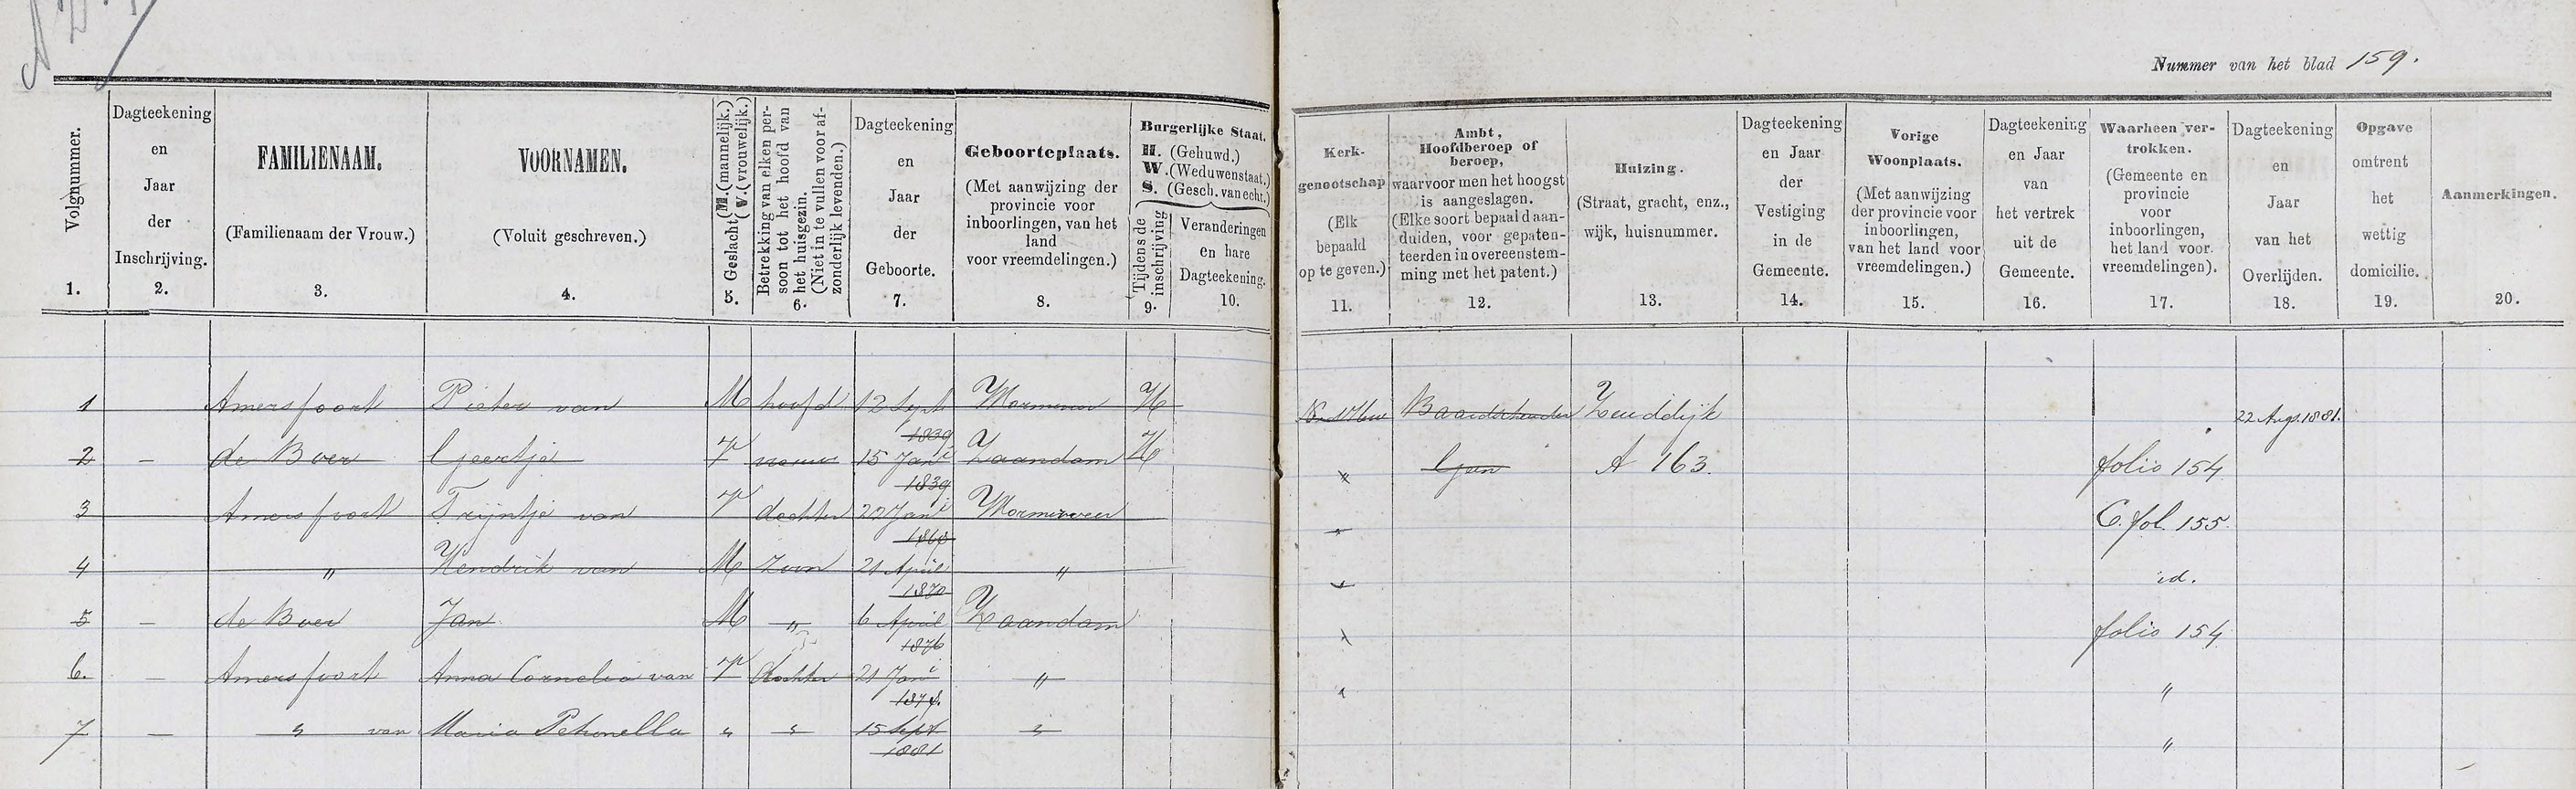 Nummer van het blad 159.
Volgnummer. 1.
Dagteekening en Jaar der Inschrijving. 2.
FAMILIENAAM. (Familienaam der Vrouw.) 3.
VOORNAMEN. (Voluit geschreven.) 4.
Geslacht (M. (mannelijk.) (V. (vrouwelijk.) 5.
Betrekking van elken persoon tot het hoofd van het huisgezin. (Niet in te vullen voor afzonderlijk levenden.) 6.
Dagteekening en Jaar der Geboorte. 7.
Geboorteplaats. (Met aanwijzing der provincie voor inboorlingen, van het land voor vreemdelingen.) 8.
Burgerlijke Staat. H. (Gehuwd.) W. (Weduwenstaat.) S. (Gesch. van echt.)
Tijdens de inschrijving 9.
Veranderingen en hare Dagteekening. 10.
Kerkgenootschap (Elk bepaald op te geven.) 11.
Ambt, Hoofdberoep of beroep, waarvoor men het hoogst is aangeslagen. (Elke soort bepaald aanduiden, voor gepatenteerden in overeenstemming met het patent.) 12.
Huizing. (Straat, gracht, enz., wijk, huisnummer. 13.
Dagteekening en Jaar der Vestiging in de Gemeente. 14.
Vorige Woonplaats. (Met aanwijzing der provincie voor inboorlingen, van het land voor vreemdelingen.) 15.
Dagteekening en Jaar van het vertrek uit de Gemeente. 16.
Waarheen vertrokken. (Gemeente en provincie voor inboorlingen, het land voor vreemdelingen). 17.
Dagteekening en Jaar van het Overlijden. 18.
Opgave omtrent het wettig domicilie. 19.
Aanmerkingen. 20.
1 Amersfoort Pieter van M hoofd 12 Sept 1839 Wormerveer H Zuiddijk 22 Aug. 1881.
2 — de Boer Geertje V vrouw 15 Jani 1839 Zaandam H " Geen A 163. folio 154
3 Amersfoort Trijntje van V dochter 22 Jani Wormerveer " C. fol. 155.
4 " Hendrik van M Zoon 21 April 1870 " " id.
5 — de Boer Jan M " 6 April 1876 Zaandam " folio 154
6. — Amersfoort Anna Cornelia van V dochter 21 Jani 1878. " " "
7 — " van Maria Petronella " " 15 Sept. 1881 " "